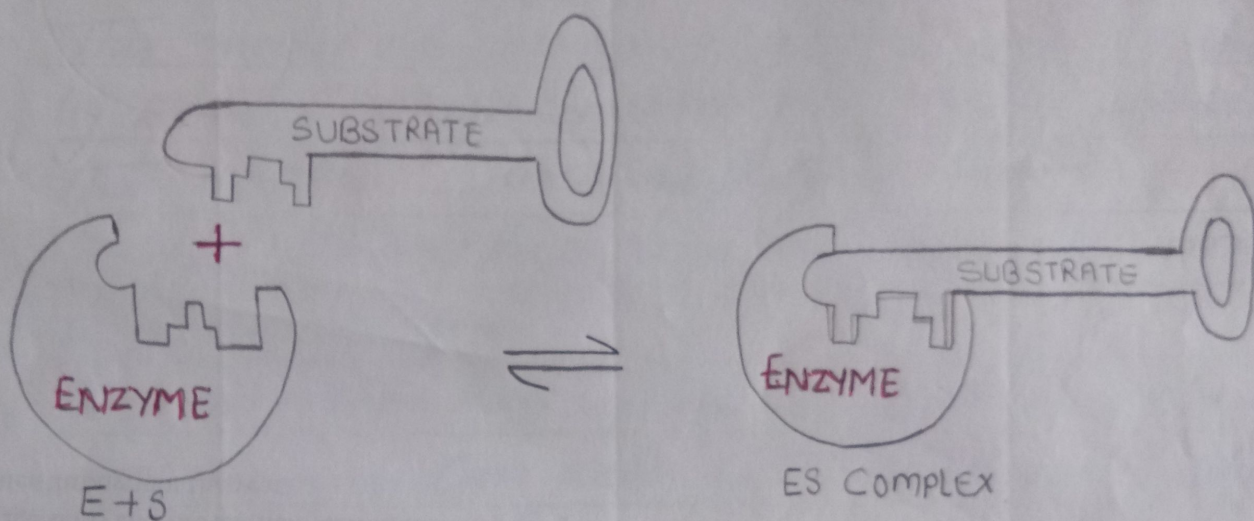 SUBSTRATE
+
ENZYME
E+S
⇌
SUBSTRATE
ENZYME
ES COMPLEX